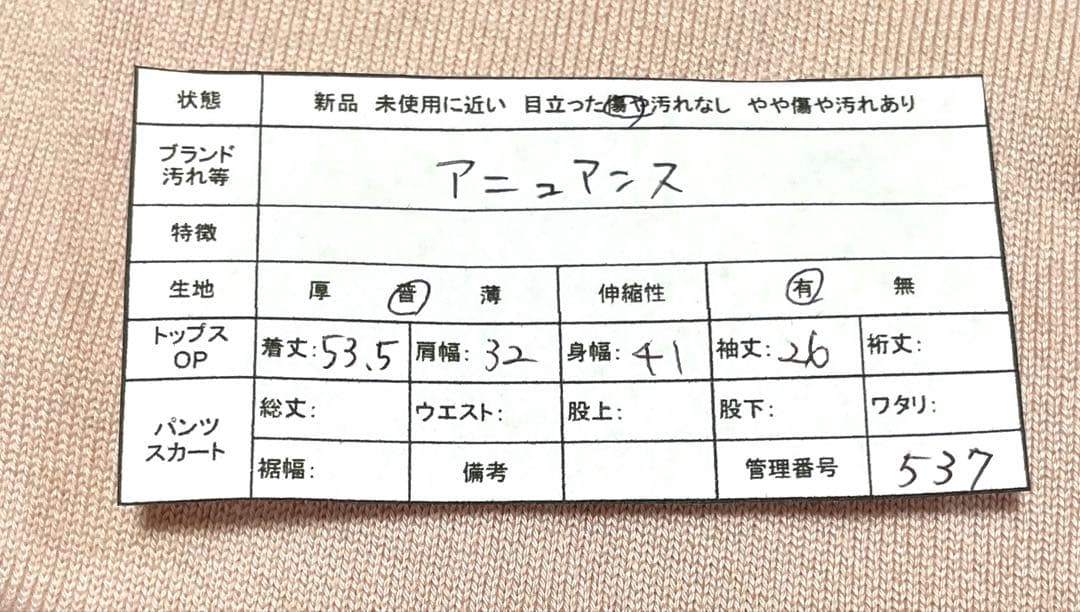 状態 新品 未使用に近い 目立った傷や汚れなし やや傷や汚れあり
ブランド
汚れ等
アニュアンス
特徴
生地 厚 普 薄 伸縮性 有 無
トップス
OP
着丈:53.5 肩幅:32 身幅:41 袖丈:26 裄丈:
パンツ
スカート
総丈: ウエスト: 股上: 股下: ワタリ:
裾幅: 備考 管理番号 537